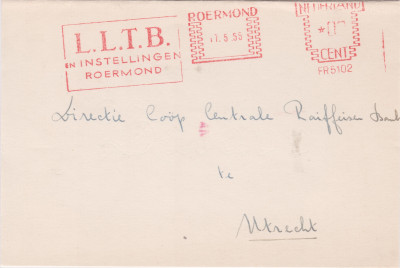 L.L.T.B.
EN INSTELLINGEN
ROERMOND
ROERMOND
5.55
NEDERLAND
CENT
FR5102
Directie Coöp Centrale Raiffeisen Bank
te
Utrecht